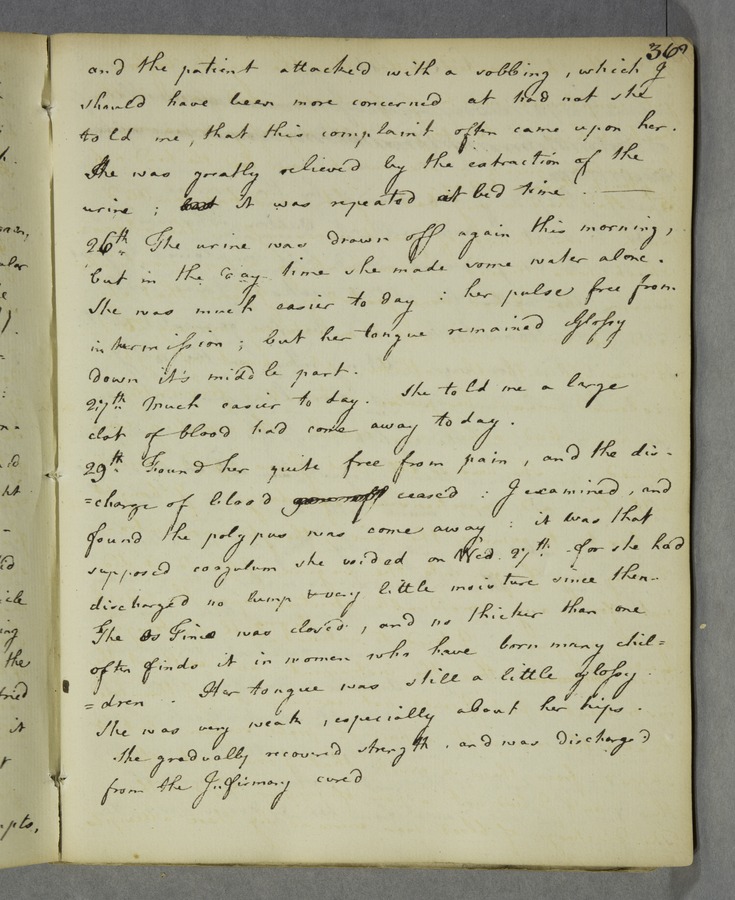 369
and the patient attacked with a sobbing, which I
should have been more concerned at had not she
told me, that this complaint often came upon her.
She was greatly relieved by the extraction of the
urine; it was repeated at bed time.
26th. The urine was drawn off again this morning,
but in the day time she made some water alone.
She was much easier to day: her pulse free from
intermission; but her tongue remained glossy
down it's middle part.
27th. Much easier to day. She told me a large
clot of blood had come away today.
29th. Found her quite free from pain, and the dis-
=charge of blood ceased: I examined, and
found the polypus was come away: it was that
supposed coagulum she voided on Wed. 27th. for she had
discharged no lump & very little moisture since then.
The Os Tincæ was closed, and no thicker than one
often finds it in women who have born many chil=
=dren. Her tongue was still a little glossy.
She was very weak, especially about her hips.
She gradually recovered strength, and was discharged
from the Infirmary cured